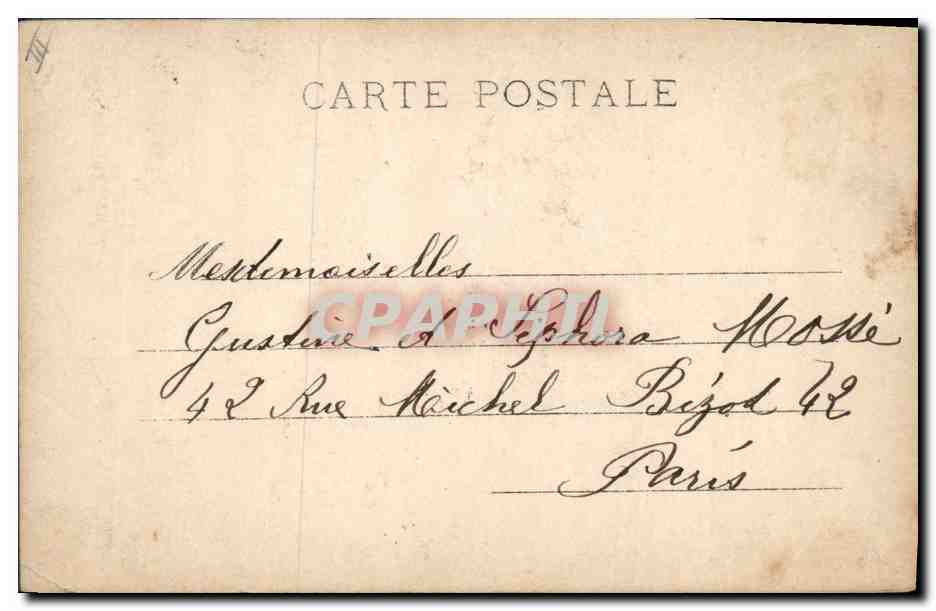 III
CARTE POSTALE
Mesdemoiselles
Gustine et Sephora Mossé
42 Rue Michel Bizot 42
Paris
CPAPHTI